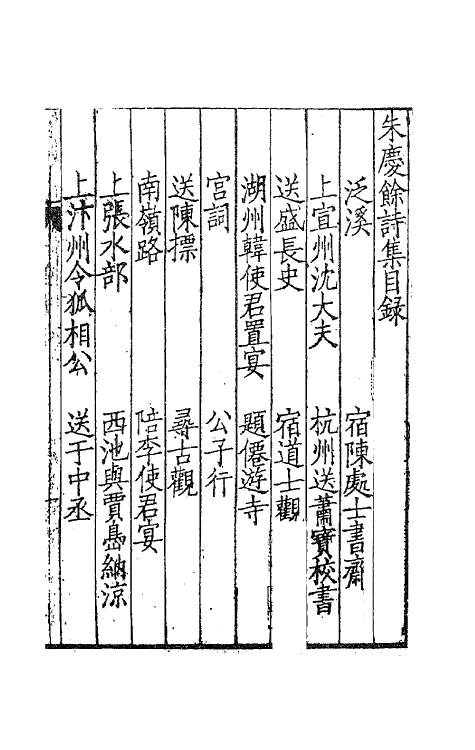 朱慶餘詩集目録
泛溪　宿陳處士書齋
上宣州沈大夫　杭州送蕭寶校書
送盛長史　宿道士觀
湖州韓使君置宴　題僊遊寺
宮詞　公子行
送陳摽　尋古觀
南嶺路　陪李使君宴
上張水部　西池與賈島納涼
上汴州令狐相公　送于中丞